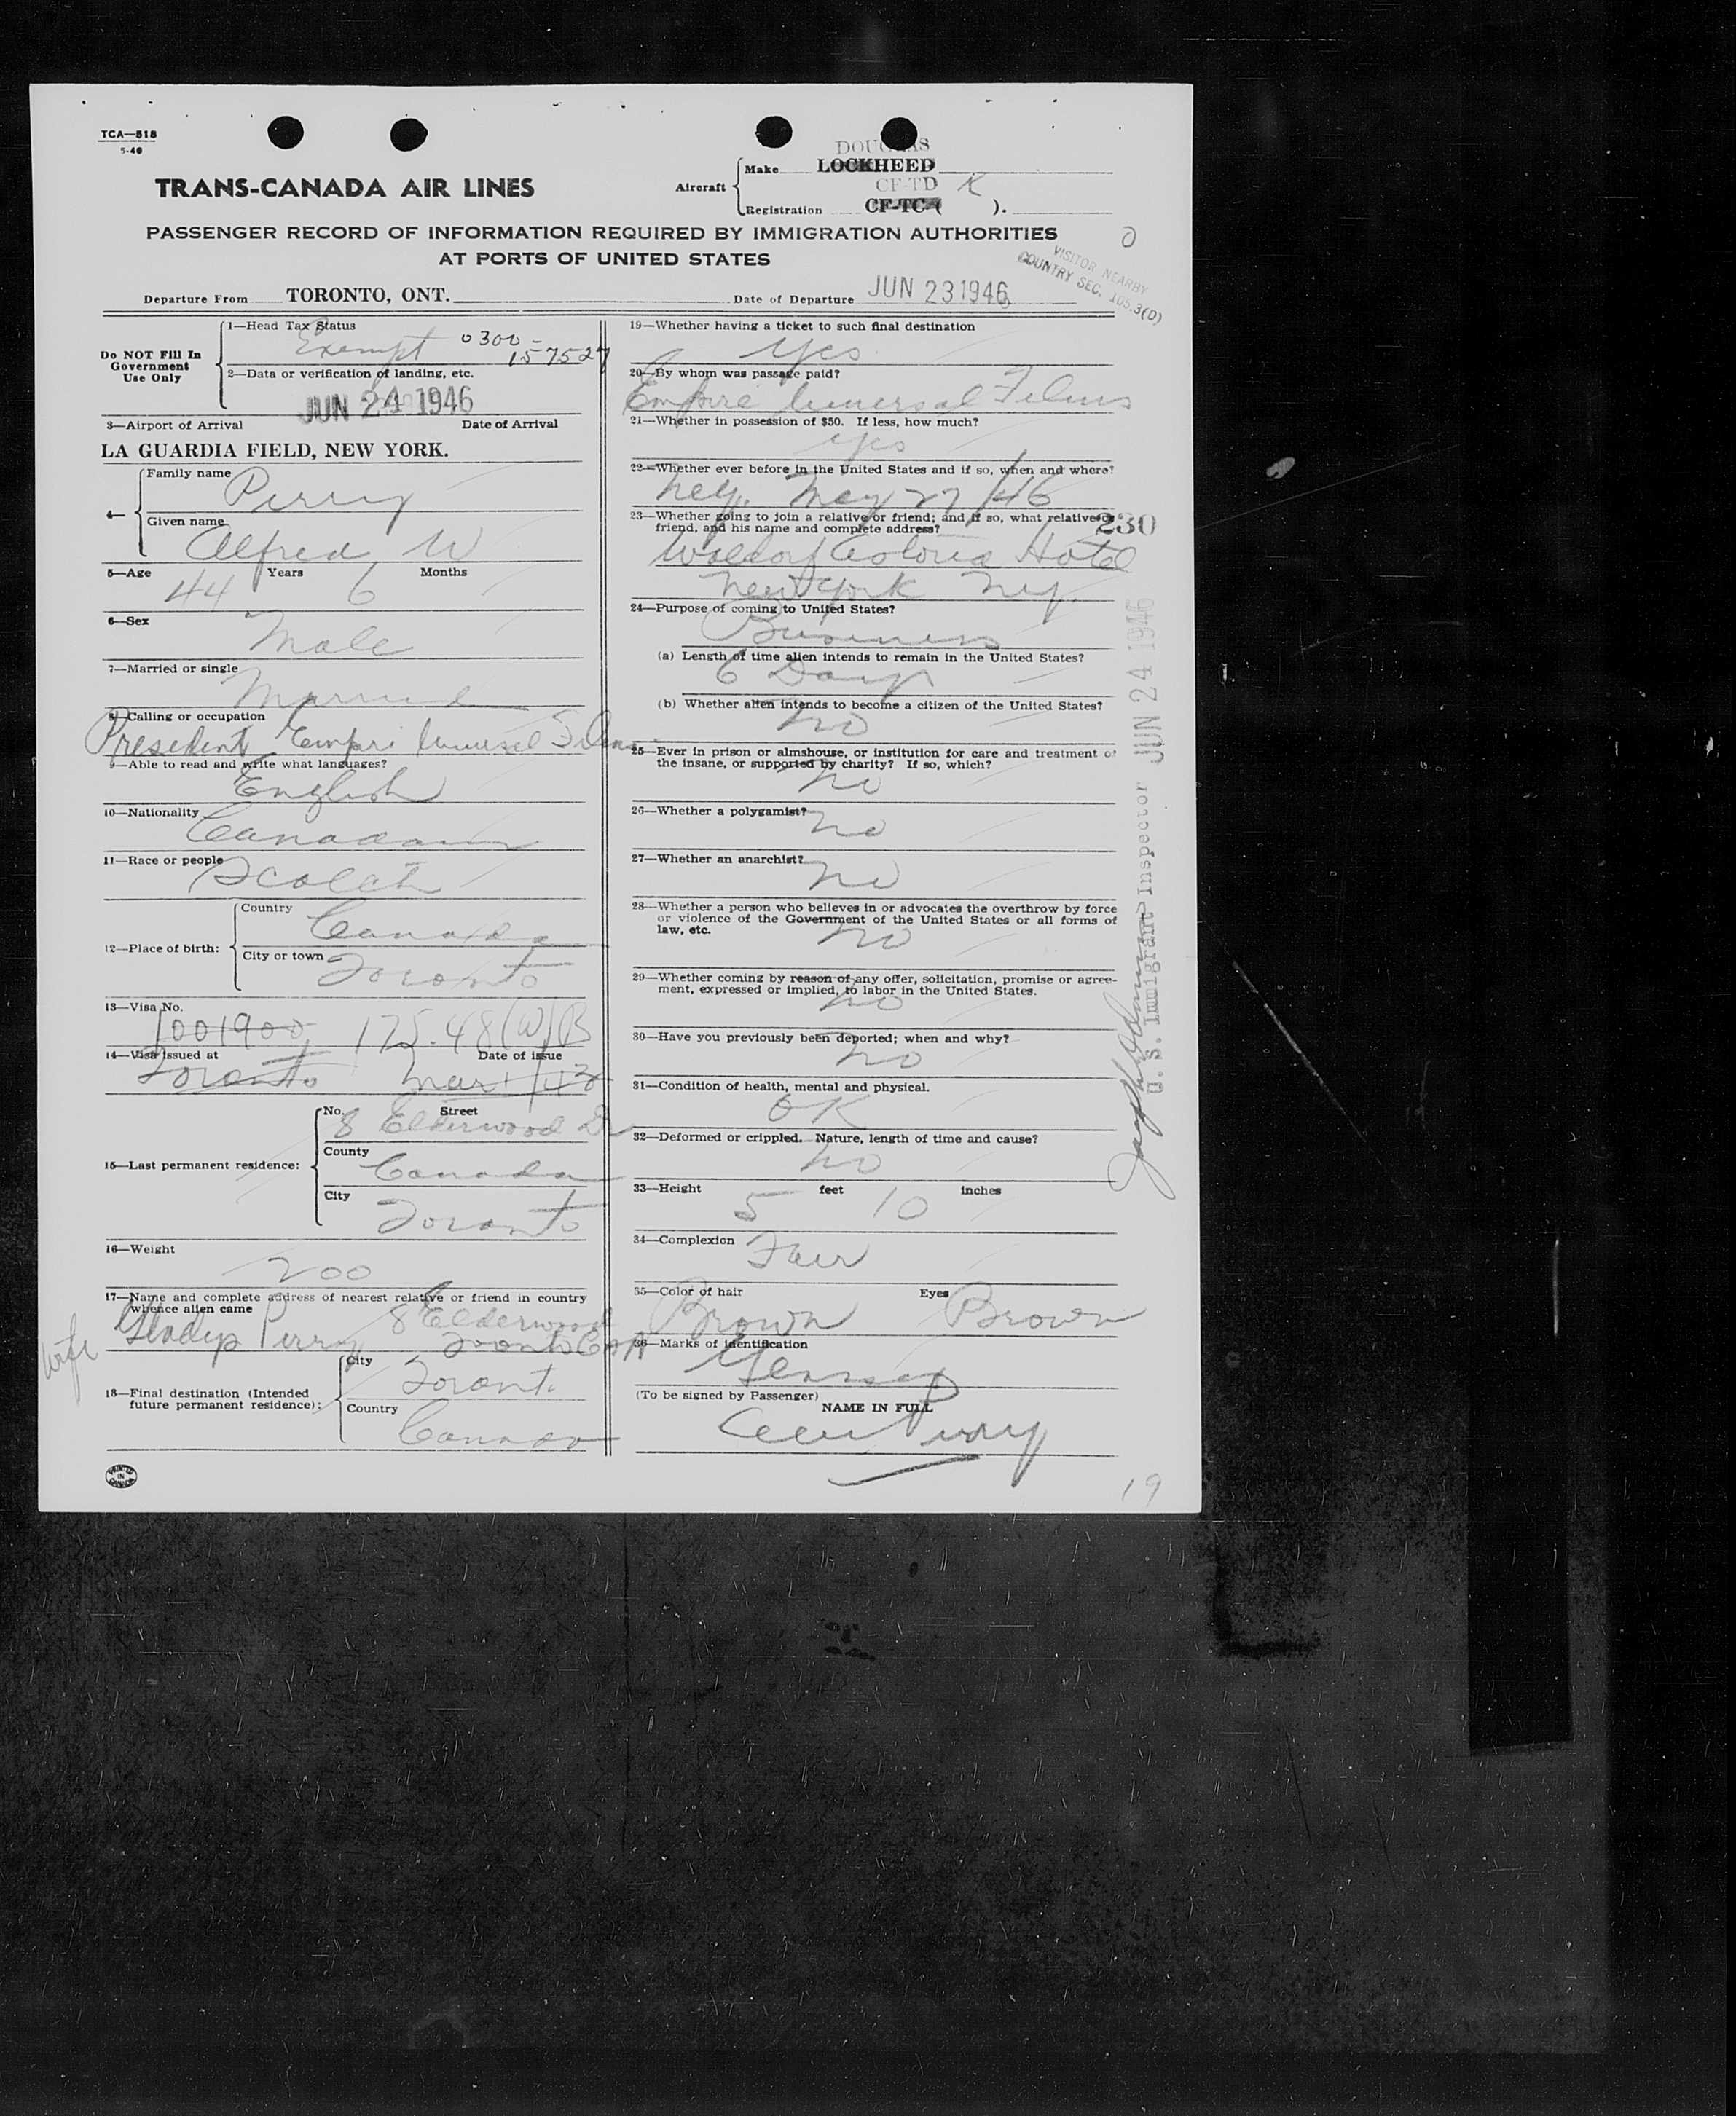 TCA—518
5-46
DOUGLAS
Aircraft
Make LOCKHEED
CF-TD K
Registration CF-TC-( ).
TRANS-CANADA AIR LINES
PASSENGER RECORD OF INFORMATION REQUIRED BY IMMIGRATION AUTHORITIES
AT PORTS OF UNITED STATES
VISITOR NEARBY
COUNTRY SEC. 105.3(D)
Departure From TORONTO, ONT. Date of Departure JUN 23 1946
Do NOT Fill In
Government
Use Only
1—Head Tax Status
Exempt 0300-
157527
2—Data or verification of landing, etc.
JUN 24 1946
3—Airport of Arrival Date of Arrival
LA GUARDIA FIELD, NEW YORK.
4—
Family name Perry
Given name Alfred W
5—Age 44 Years 6 Months
6—Sex Male
7—Married or single
Married
8—Calling or occupation
President Empire Universal Films
9—Able to read and write what languages?
English
10—Nationality
Canadian
11—Race or people
Scotch
12—Place of birth:
Country Canada
City or town Toronto
13—Visa No.
1001900 175.48(W)B
14—Visa issued at Date of issue
Toronto Mar 1/43
15—Last permanent residence:
No. Street
8 Elderwood Dr
County
Canada
City
Toronto
16—Weight
200
17—Name and complete address of nearest relative or friend in country
whence alien came
wife Gladys Perry 8 Elderwood
Toronto Can
18—Final destination (Intended
future permanent residence):
City
Toronto
Country
Canada
PRINTED
IN
CANADA
19—Whether having a ticket to such final destination
Yes
20—By whom was passage paid?
Empire Universal Films
21—Whether in possession of $50. If less, how much?
yes
22—Whether ever before in the United States and if so, when and where?
N.Y. May 27/46
23—Whether going to join a relative or friend; and if so, what relative or
friend, and his name and complete address?
230
Waldorf Astoria Hotel
New York N.Y.
24—Purpose of coming to United States?
Business
(a) Length of time alien intends to remain in the United States?
6 Days
(b) Whether alien intends to become a citizen of the United States?
no
25—Ever in prison or almshouse, or institution for care and treatment of
the insane, or supported by charity? If so, which?
no
26—Whether a polygamist?
no
27—Whether an anarchist?
no
28—Whether a person who believes in or advocates the overthrow by force
or violence of the Government of the United States or all forms of
law, etc.
no
29—Whether coming by reason of any offer, solicitation, promise or agree-
ment, expressed or implied, to labor in the United States.
no
30—Have you previously been deported; when and why?
no
31—Condition of health, mental and physical.
OK
32—Deformed or crippled. Nature, length of time and cause?
no
33—Height 5 feet 10 inches
34—Complexion
Fair
35—Color of hair Eyes
Brown Brown
36—Marks of identification
(To be signed by Passenger)
NAME IN FULL
Perry
JUN 24 1946
U. S. Immigrant Inspector
19